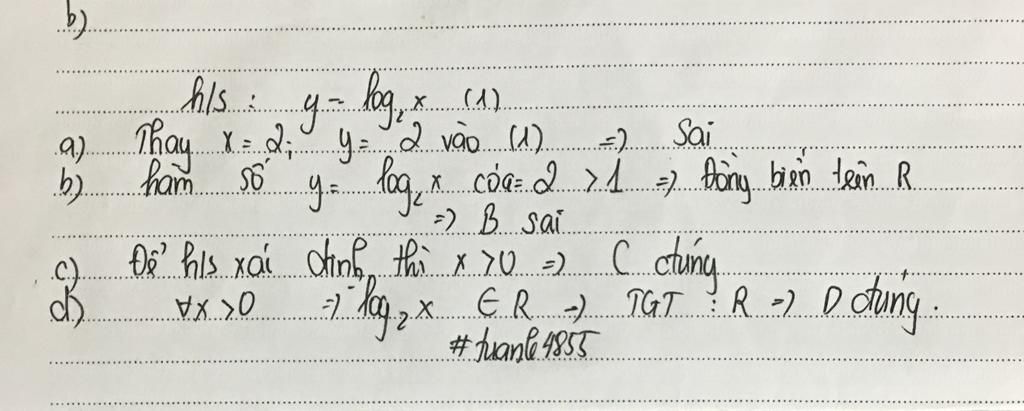 b)
h/s : y = log₂ x (1)
a) Thay x = 2; y = 2 vào (1) => Sai
b) hàm số y = log₂ x có a = 2 > 1 => Đồng biến trên R
=> B sai
c) Để h/s xác định thì x > 0 => C đúng
d) ∀x > 0 => log₂ x ∈ R => TGT : R => D đúng.
#tuanle4855